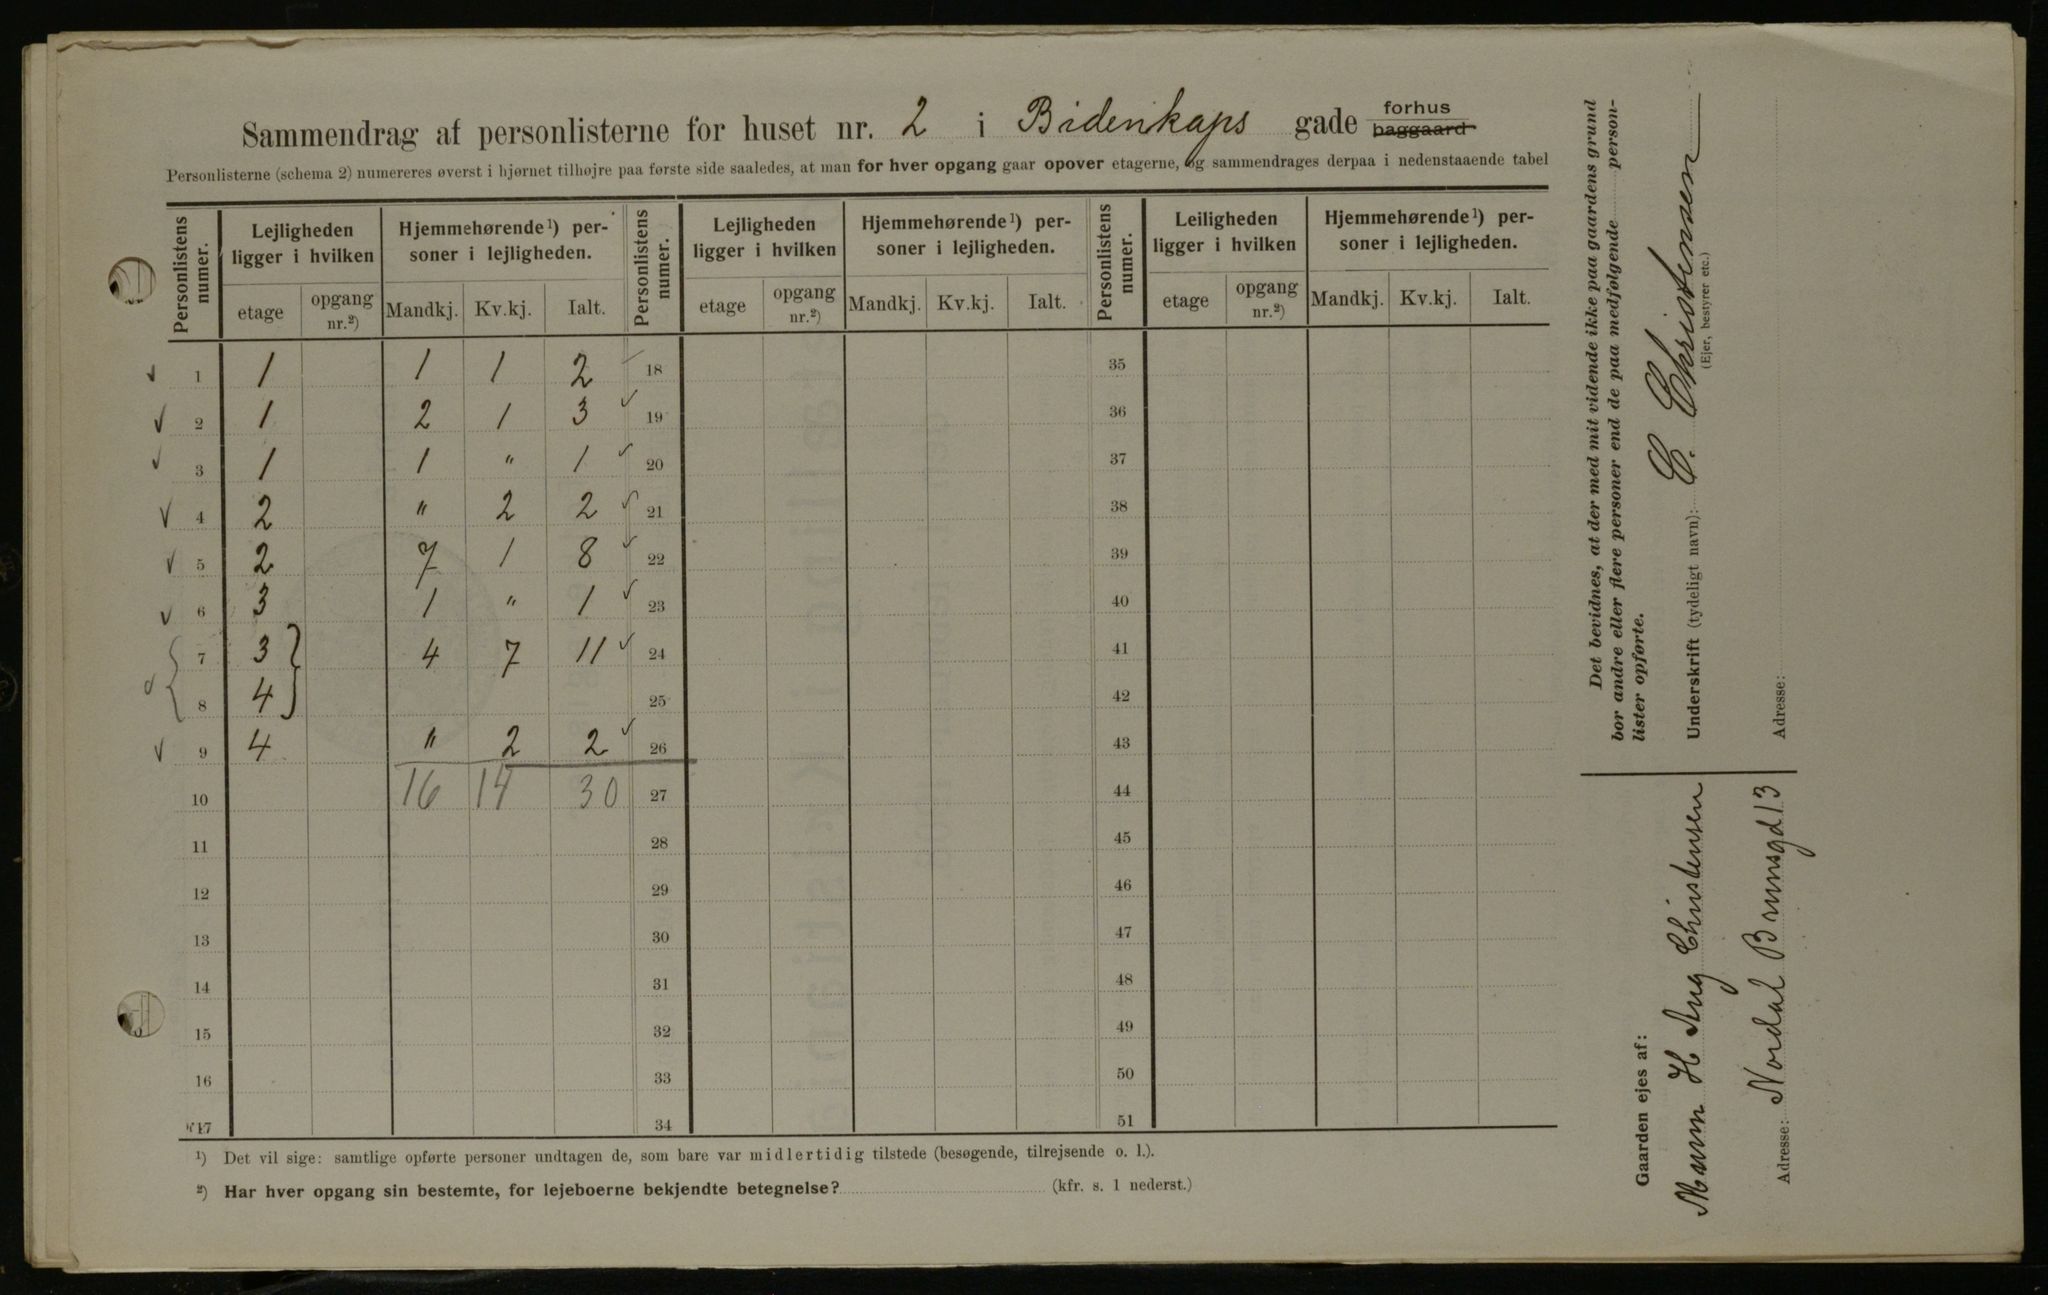 Sammendrag af personlisterne for huset nr. 2 i Bidenkaps gade forhus baggaard
Personlisterne (schema 2) numereres øverst i hjørnet tilhøjre paa første side saaledes, at man for hver opgang gaar opover etagerne, og sammendrages derpaa i nedenstaaende tabel
Personlistens numer. Lejligheden ligger i hvilken Hjemmehørende¹) personer i lejligheden. Personlistens numer. Lejligheden ligger i hvilken Hjemmehørende¹) personer i lejligheden. Personlistens numer. Leiligheden ligger i hvilken Hjemmehørende¹) personer i lejligheden.
etage opgang nr.²) Mandkj. Kv.kj. Ialt. etage opgang nr.²) Mandkj. Kv.kj. Ialt. etage opgang nr.²) Mandkj. Kv.kj. Ialt.
1 1 1 1 2 18 35
2 1 2 1 3 19 36
3 1 1 " 1 20 37
4 2 " 2 2 21 38
5 2 7 1 8 22 39
6 3 1 " 1 23 40
7 3 4 7 11 24 41
8 4 25 42
9 4 " 2 2 26 43
10 16 14 30 27 44
11 28 45
12 29 46
13 30 47
14 31 48
15 32 49
16 33 50
17 34 51
¹) Det vil sige: samtlige opførte personer undtagen de, som bare var midlertidig tilstede (besøgende, tilrejsende o. l.).
²) Har hver opgang sin bestemte, for lejeboerne bekjendte betegnelse? (kfr. s. 1 nederst.)
Det bevidnes, at der med mit vidende ikke paa gaardens grund
bor andre eller flere personer end de paa medfølgende person-
lister opførte.
Underskrift (tydeligt navn): C. Christensen
(Ejer, bestyrer etc.)
Adresse:
Gaarden ejes af:
H Aug Christensen
Adresse: Nordal Brunsgd 13